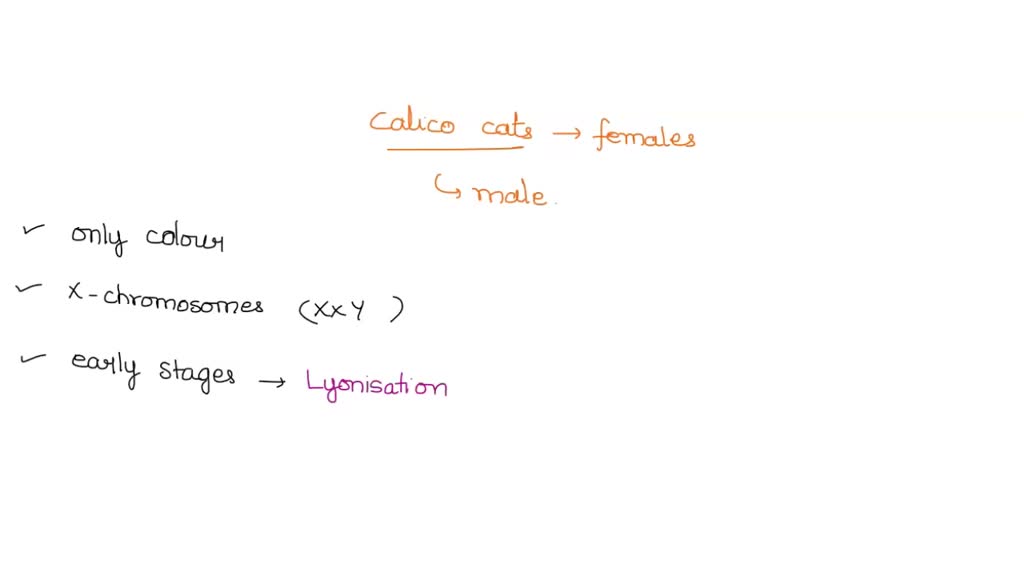 calico cats → females
↳ male.
✓ only colour
✓ X-chromosomes (XxY )
✓ early stages → Lyonisation